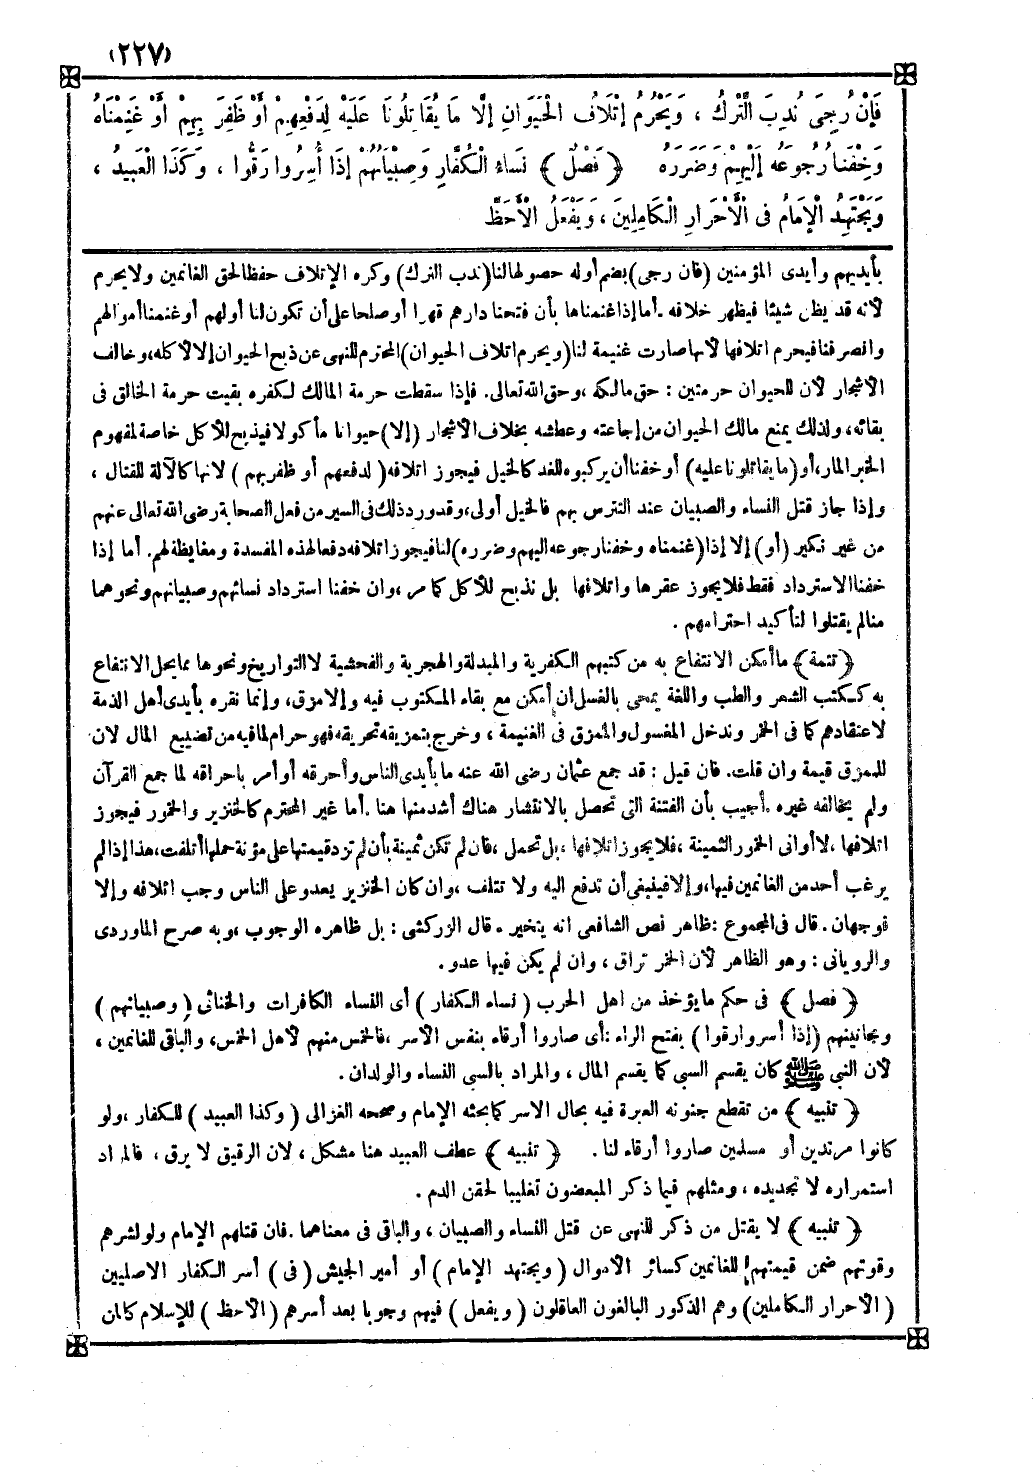 (٢٢٧)
فَإِنْ رُجِىَ نُدِبَ التَّرْكُ ، وَيَحْرُمُ إِتْلَافُ الْحَيَوَانِ إِلَّا مَا يُقَاتِلُونَا عَلَيْهِ لِدَفْعِهِمْ أَوْ ظَفِرَ بِهِمْ أَوْ غَنِمْنَاهُ
وَخِفْنَا رُجُوعَهُ إِلَيْهِمْ وَضَرَرَهُ ﴿ فَصْلٌ ﴾ نَسَاءُ الْكُفَّارِ وَصِبْيَانُهُمْ إِذَا أُسِرُوا رَقُّوا ، وَكَذَا الْعَبِيدُ ،
وَيَجْتَهِدُ الْإِمَامُ فى الْأَحْرَارِ الْكَامِلِينَ ، وَيَفْعَلُ الْأَحَظَّ
بأيديهم وأيدى المؤمنين (فان رجى) بضم أوله حصولها لنا (ندب الترك) وكره الإتلاف حفظا لحق الغانمين ولا يحرم
لأنه قد يظن شيئا فيظهر خلافه . أما إذا غنمناها بأن فتحنا دارهم قهرا أو صلحا على أن تكون لنا أو لهم أو غنمنا أموالهم
وانصرفنا فيحرم اتلافها لأنها صارت غنيمة لنا (ويحرم اتلاف الحيوان) المحترم للنهى عن ذبح الحيوان إلا لأكله ، وخالف
الأشجار لأن للحيوان حرمتين : حق مالكه ، وحق الله تعالى . فإذا سقطت حرمة المالك لكفره بقيت حرمة الخالق فى
بقائه ، ولذلك يمنع مالك الحيوان من إجاعته وعطشه بخلاف الأشجار (إلا) حيوانا مأكولا فيذبح للأكل خاصة لمفهوم
الخبر المار ، أو (ما يقاتلونا عليه) أو خفنا أن يركبوه للغد كالخيل فيجوز اتلافه ( لدفعهم أو ظفر بهم ) لانها كالآلة للقتال ،
وإذا جاز قتل النساء والصبيان عند التترس بهم فالخيل أولى ، وقد ورد ذلك فى السير من فعل الصحابة رضى الله تعالى عنهم
من غير نكير (أو) إلا إذا (غنمناه وخفنا رجوعه اليهم وضرره) لنا فيجوز اتلافه دفعا لهذه المفسدة ومغايظة لهم. أما إذا
خفنا الاسترداد فقط فلا يجوز عقرها واتلافها بل تذبح للأكل كما مر ، وان خفنا استرداد نسائهم وصبيانهم ونحوهما
منا لم يقتلوا لتأكيد احترامهم .
﴿ تتمة ﴾ ما أمكن الانتفاع به من كتبهم الكفرية والمبدلة والهجرية والفحشية لا التواريخ ونحوها مما يحل الانتفاع
به ككتب الشعر والطب واللغة يمحى بالغسل ان أمكن مع بقاء المكتوب فيه وإلا مزق ، وإنما نقره بأيدى أهل الذمة
لاعتقادهم كما فى الخمر وندخل المغسول والممزق فى الغنيمة ، وخرج بتمزيقه تحريقه فهو حرام لما فيه من تضييع المال لان
للممزق قيمة وان قلت . فان قيل : قد جمع عثمان رضى الله عنه ما بأيدى الناس وأحرقه أو أمر باحراقه لما جمع القرآن
ولم يخالفه غيره . أجيب بأن الفتنة التى تحصل بالانتشار هناك أشد منها هنا . أما غير المحترم كالخنزير والخمور فيجوز
اتلافها ، لا أوانى الخمور الثمينة ، فلا يجوز اتلافها ، بل تحمل ، فان لم تكن ثمينة بأن لم تزد قيمتها على مؤنة حملها أتلفت ، هذا إذا لم
يرغب أحد من الغانمين فيها ، وإلا فينبغى أن تدفع اليه ولا تتلف ، وان كان الخنزير يعدو على الناس وجب اتلافه وإلا
فوجهان . قال فى المجموع : ظاهر نص الشافعى انه يتخير . قال الزركشى : بل ظاهره الوجوب ، وبه صرح الماوردى
والرويانى : وهو الظاهر لأن الخمر تراق ، وان لم يكن فيها عدو .
﴿ فصل ﴾ فى حكم ما يؤخذ من اهل الحرب ( نساء الكفار ) أى النساء الكافرات والخناثى ( وصبيانهم )
ومجانينهم (إذا أسروا رقوا ) بفتح الراء : أى صاروا أرقاء بنفس الأسر ، فالخمس منهم لأهل الخمس ، والباقى للغانمين ،
لأن النبى ﷺ كان يقسم السبى كما يقسم المال ، والمراد بالسبى النساء والولدان .
﴿ تنبيه ﴾ من تقطع جنونه العبرة فيه بحال الأسر كما بحثه الإمام وصححه الغزالى ( وكذا العبيد ) للكفار ، ولو
كانوا مرتدين أو مسلمين صاروا أرقاء لنا . ﴿ تنبيه ﴾ عطف العبيد هنا مشكل ، لان الرقيق لا يرق ، فالمراد
استمراره لا تجديده ، ومثلهم فيما ذكر المبعضون تغليبا لحقن الدم .
﴿ تنبيه ﴾ لا يقتل من ذكر للنهى عن قتل النساء والصبيان ، والباقى فى معناهما . فان قتلهم الإمام ولو لشرهم
وقوتهم ضمن قيمتهم للغانمين كسائر الأموال ( ويجتهد الإمام ) أو أمير الجيش ( فى ) أسر الكفار الاصليين
( الأحرار الكاملين ) وهم الذكور البالغون العاقلون ( ويفعل ) فيهم وجوبا بعد أسرهم ( الاحظ ) للإسلام كما ان